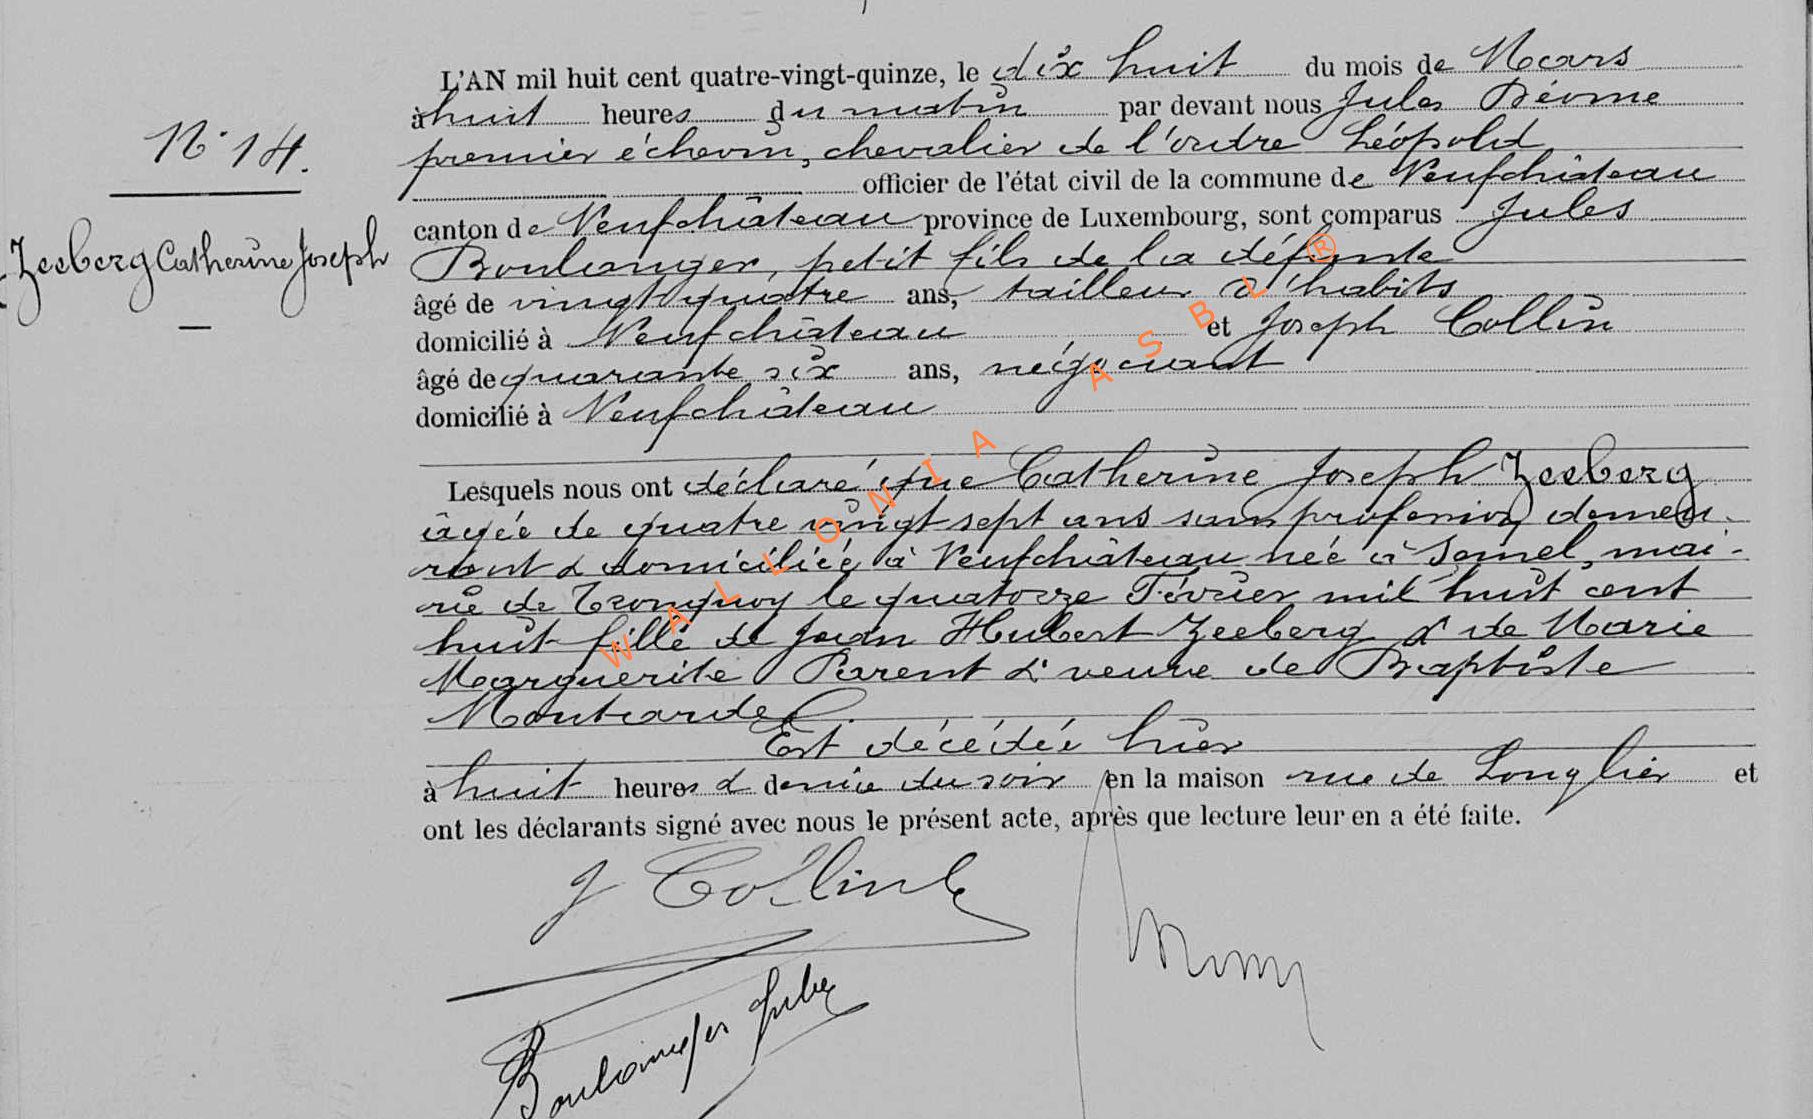 L'AN mil huit cent quatre-vingt-quinze, le dix huit du mois de Mars
à huit heures du matin par devant nous Jules
N° 14.
premier échevin, chevalier de l'ordre Léopold
officier de l'état civil de la commune de Neufchâteau
canton de Neufchâteau province de Luxembourg, sont comparus Jules
Zeeberg Catherine Joseph
Boulanger, petit fils de la défunte
âgé de vingt quatre ans, tailleur d'habits
domicilié à Neufchâteau et Joseph Collin
âgé de quarante six ans, négociant
domicilié à Neufchâteau
Lesquels nous ont déclaré que Catherine Joseph Zeeberg
âgée de quatre vingt sept ans sans profession demeu-
rant & domiciliée à Neufchâteau née à Semel, mai-
rie de Tronquoy le quatorze Février mil huit cent
huit fille de Jean Hubert Zeeberg & de Marie
Marguerite Parent & veuve de Baptiste
Est décédée hier
à huit heures & demie du soir en la maison rue de Longlier et
ont les déclarants signé avec nous le présent acte, après que lecture leur en a été faite.
J Collin
Boulanger Jules
WALLONIA ASBL®